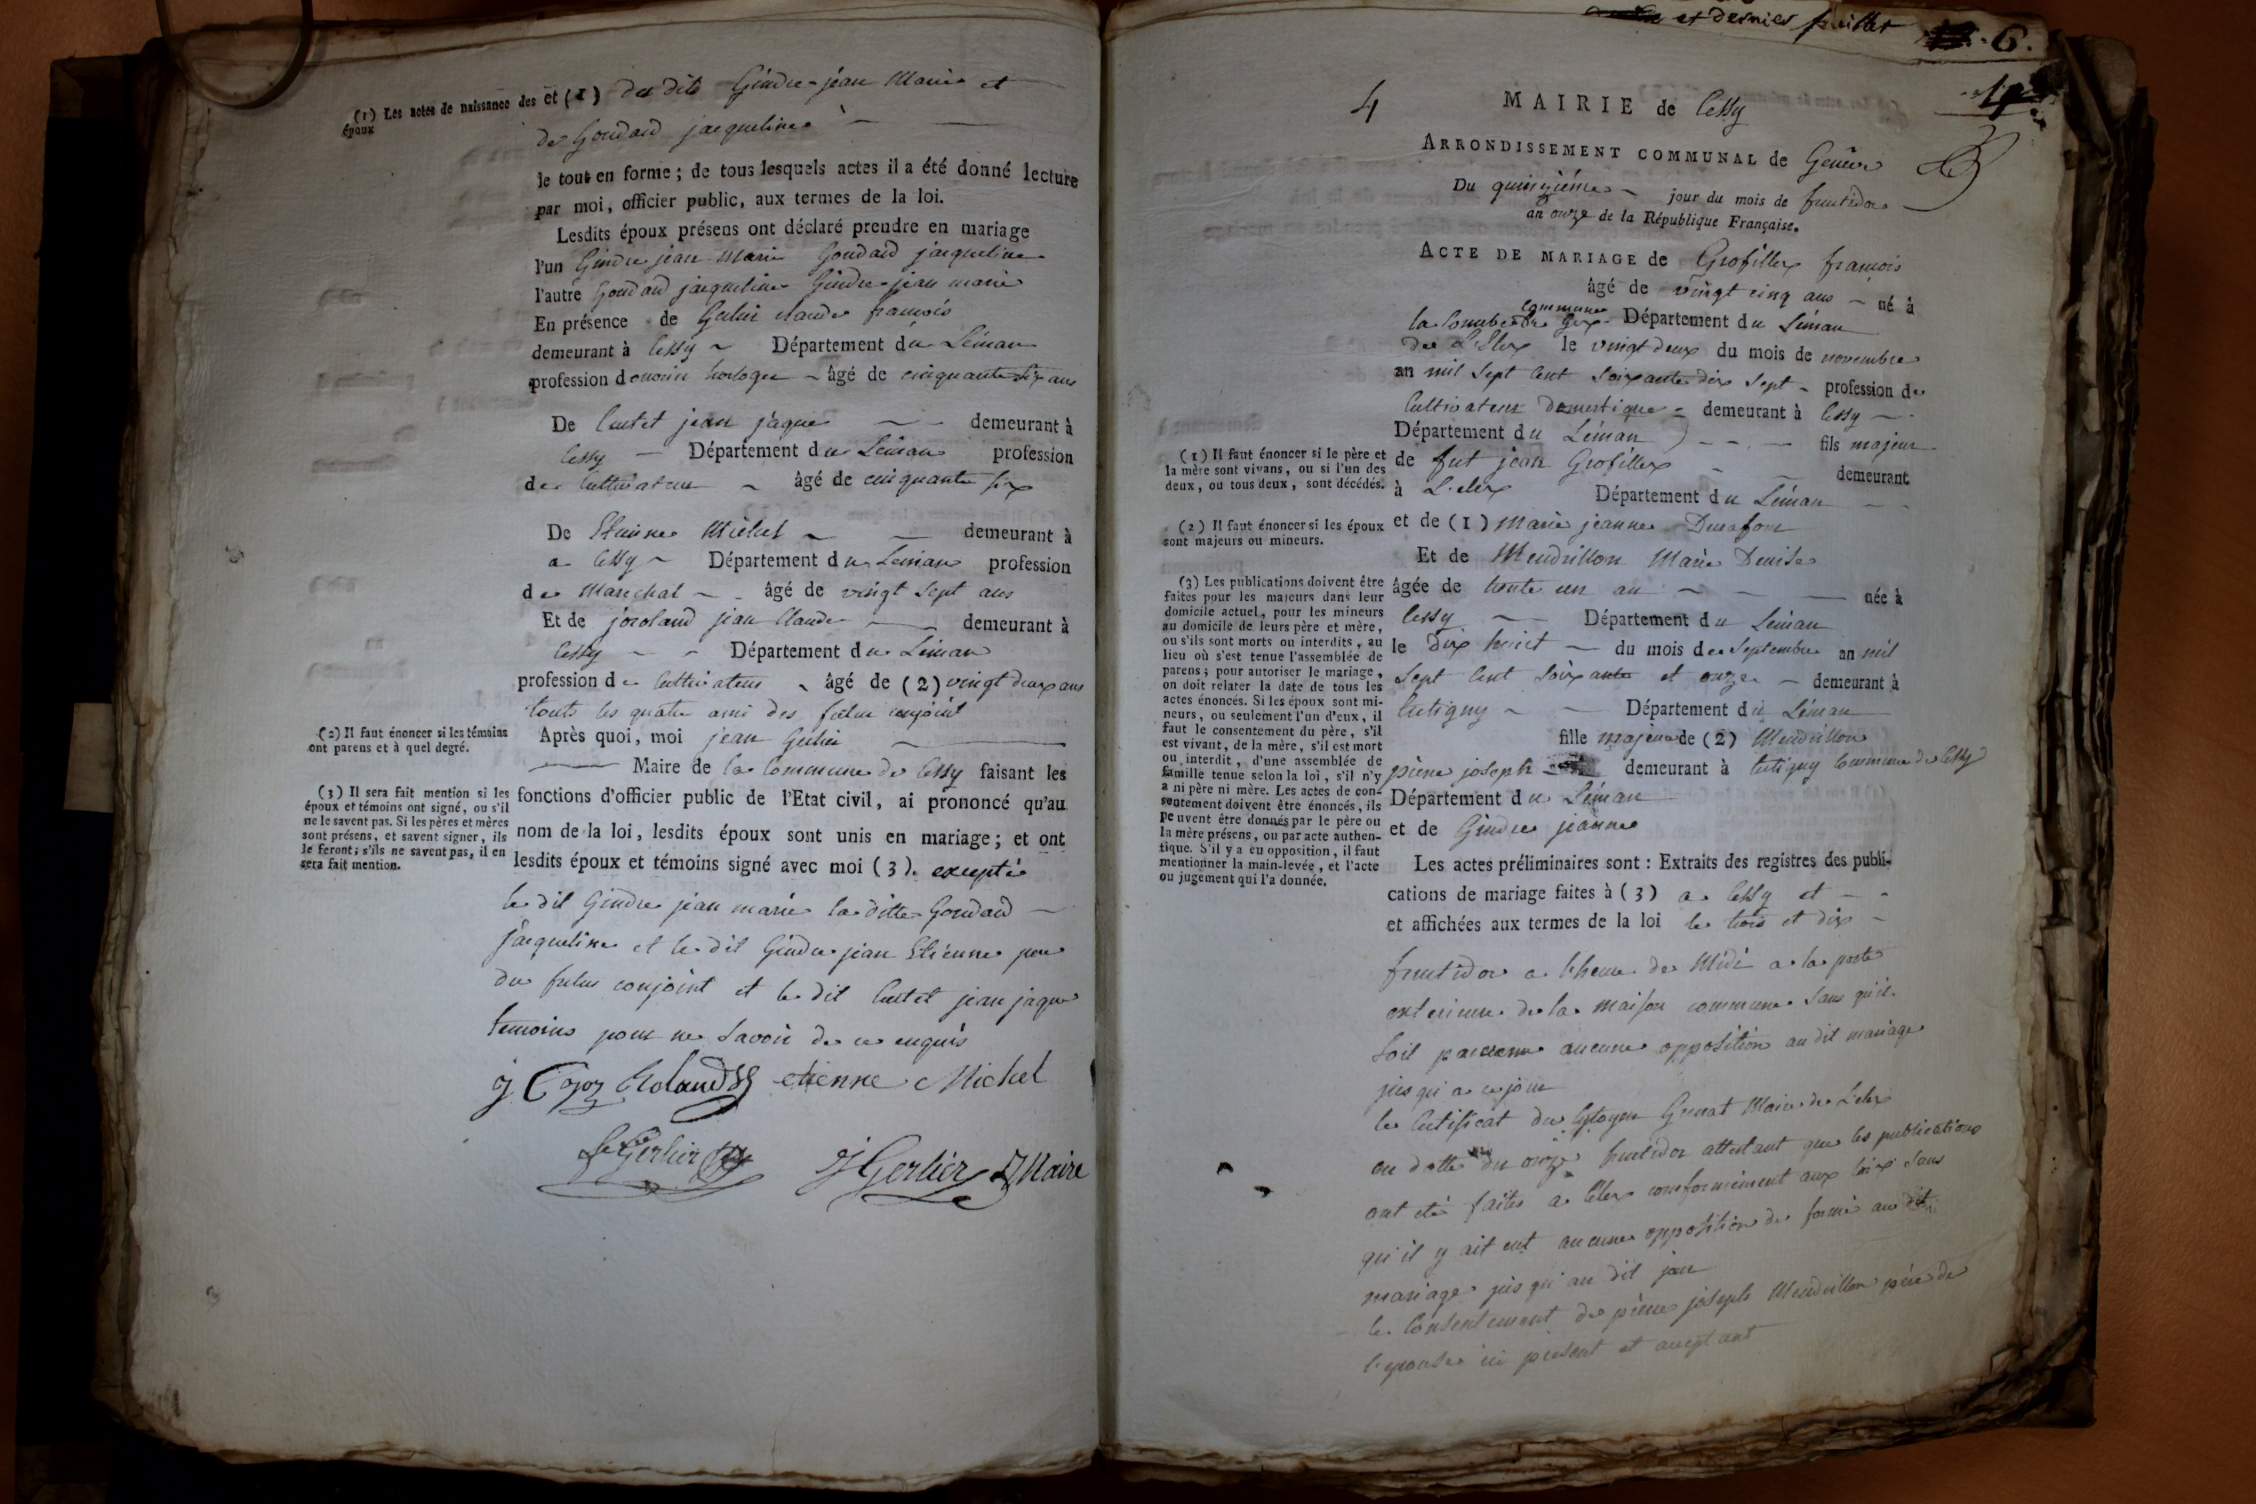 (1) Les actes de naissance des époux
et (1) des dits Gindre jean Marie et
de Goudard jacqueline
le tout en forme ; de tous lesquels actes il a été donné lecture
par moi, officier public, aux termes de la loi.
Lesdits époux présens ont déclaré prendre en mariage
l'un Gindre jean Marie Goudard jacqueline
l'autre Goudard jacqueline Gindre jean marie
En présence de Gerlier claude francois
demeurant à Cessy Département du Léman
profession de horloger âgé de cinquante six ans
De Curtet jean jaque demeurant à
Cessy Département du Léman profession
de Cultivateur âgé de cinquante six
De Etienne Michel demeurant à
a Cessy Département du Léman profession
de Marechal âgé de vingt sept ans
Et de jean Claude demeurant à
Cessy Département du Léman
profession de Cultivateur âgé de (2) vingt deux ans
touts les quatre ami des futur conjoint
(2) Il faut énoncer si les témoins
ont parens et à quel degré.
Après quoi, moi jean Gerlier
Maire de la Commune de Cessy faisant les
fonctions d'officier public de l'Etat civil, ai prononcé qu'au
nom de la loi, lesdits époux sont unis en mariage ; et ont
lesdits époux et témoins signé avec moi (3). excepté
(3) Il sera fait mention si les
époux et témoins ont signé, ou s'il
ne le savent pas. Si les pères et mères
sont présens, et savent signer, ils
le feront ; s'ils ne savent pas, il en
sera fait mention.
le dit Gindre jean marie la ditte Goudard
jacqueline et le dit Gindre jean Etienne pere
du futur conjoint et le dit Curtet jean jaque
temoins pour ne Savoir de ce enquis
Roland etienne Michel
Gerlier J Gerlier Maire
et dernier feuillet 6.
4
MAIRIE de Cessy
ARRONDISSEMENT COMMUNAL de Genève
Du quinzième jour du mois de fructidor
an onze de la République Française.
ACTE DE MARIAGE de Grofillex francois
âgé de vingt cinq ans né à
la Combe de Gex commune Département du Léman
de L'Elex le vingt deux du mois de novembre
an mil Sept Cent Soixante dix Sept profession de
Cultivateur Domestique demeurant à Cessy
Département du Léman fils majeur
de fut jean Grofillex demeurant
à Lelex Département du Léman
et de (1) Marie jeanne Durafour
Et de Mendrillon Marie Denise
âgée de trente un an née à
Cessy Département du Léman
le Dix huict du mois de Septembre an mil
Sept Cent Soixante et onze demeurant à
tutigny Département du Léman
fille majeure de (2) Mendrillon
pierre joseph demeurant à tutigny Commune de Cessy
Département du Léman
et de Gindre jeanne
(1) Il faut énoncer si le père et
la mère sont vivans, ou si l'un des
deux, ou tous deux, sont décédés.
(2) Il faut énoncer si les époux
sont majeurs ou mineurs.
(3) Les publications doivent être
faites pour les majeurs dans leur
domicile actuel, pour les mineurs
au domicile de leurs père et mère,
ou s'ils sont morts ou interdits, au
lieu où s'est tenue l'assemblée de
parens ; pour autoriser le mariage,
on doit relater la date de tous les
actes énoncés. Si les époux sont mi-
neurs, ou seulement l'un d'eux, il
faut le consentement du père, s'il
est vivant, de la mère, s'il est mort
ou interdit, d'une assemblée de
famille tenue selon la loi, s'il n'y
a ni père ni mère. Les actes de con-
sentement doivent être énoncés, ils
peuvent être donnés par le père ou
la mère présens, ou par acte authen-
tique. S'il y a eu opposition, il faut
mentionner la main-levée, et l'acte
ou jugement qui l'a donnée.
Les actes préliminaires sont : Extraits des registres des publi-
cations de mariage faites à (3) a Cessy et
et affichées aux termes de la loi le trois et dix
fructidor a l'heure de Midi a la porte
exterieure de la Maison commune Sans qu'il
Soit parvenu aucune opposition au dit mariage
jusqu'a ce jour
le Certificat du Citoyen Grenat Maire de Lelex
en datte du onze fructidor attestant que les publications
ont eté faites a Lelex conformément aux loix Sans
qu'il y ait eut aucune opposition de formé au dit
mariage jusqu'au dit jour
le Consentement de pierre joseph Mendrillon père de
l'epouse ici présent et acceptant